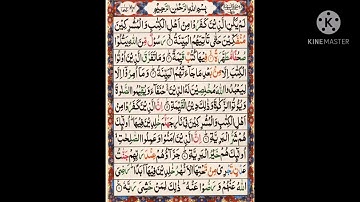 بِسْمِ اللّٰهِ الرَّحْمٰنِ الرَّحِیْمِ
لَمْ یَكُنِ الَّذِیْنَ كَفَرُوْا مِنْ اَهْلِ الْكِتٰبِ وَالْمُشْرِكِیْنَ
مُنْفَكِّیْنَ حَتّٰى تَاْتِیَهُمُ الْبَیِّنَةُ رَسُوْلٌ مِّنَ اللّٰهِ یَتْلُوْا
صُحُفًا مُّطَهَّرَةً فِیْهَا كُتُبٌ قَیِّمَةٌ وَمَا تَفَرَّقَ الَّذِیْنَ اُوْتُوا
الْكِتٰبَ اِلَّا مِنْۢ بَعْدِ مَا جَآءَتْهُمُ الْبَیِّنَةُ وَمَاۤ اُمِرُوْۤا اِلَّا
لِیَعْبُدُوا اللّٰهَ مُخْلِصِیْنَ لَهُ الدِّیْنَ حُنَفَآءَ وَیُقِیْمُوا الصَّلٰوةَ
وَیُؤْتُوا الزَّكٰوةَ وَذٰلِكَ دِیْنُ الْقَیِّمَةِ اِنَّ الَّذِیْنَ كَفَرُوْا مِنْ
اَهْلِ الْكِتٰبِ وَالْمُشْرِكِیْنَ فِیْ نَارِ جَهَنَّمَ خٰلِدِیْنَ فِیْهَا اُولٰٓىِٕكَ
هُمْ شَرُّ الْبَرِیَّةِ اِنَّ الَّذِیْنَ اٰمَنُوْا وَعَمِلُوا الصّٰلِحٰتِ
اُولٰٓىِٕكَ هُمْ خَیْرُ الْبَرِیَّةِ جَزَآؤُهُمْ عِنْدَ رَبِّهِمْ جَنّٰتُ
عَدْنٍ تَجْرِیْ مِنْ تَحْتِهَا الْاَنْهٰرُ خٰلِدِیْنَ فِیْهَاۤ اَبَدًا رَضِیَ
اللّٰهُ عَنْهُمْ وَرَضُوْا عَنْهُ ذٰلِكَ لِمَنْ خَشِیَ رَبَّهٗ
Made with
KINEMASTER